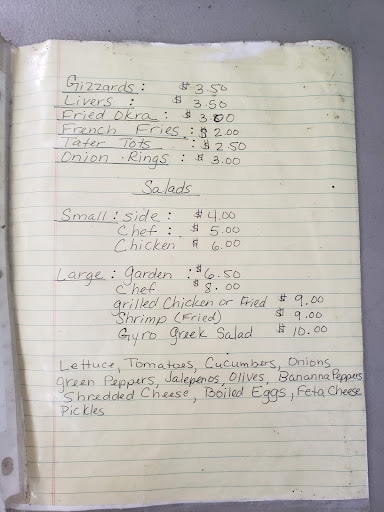 Gizzards : $ 3.50
Livers : $ 3.50
Fried Okra : $ 3.00
French Fries : $ 2.00
Tater Tots : $ 2.50
Onion Rings : $ 3.00
Salads
Small : side : $ 4.00
Chef : $ 5.00
Chicken $ 6.00
Large : garden : $ 6.50
Chef $ 8.00
grilled Chicken or Fried $ 9.00
Shrimp (Fried) $ 9.00
Gyro Greek Salad $ 10.00
Lettuce, Tomatoes, Cucumbers, Onions
green Peppers, Jalepenos, Olives, Bananna Peppers
Shredded Cheese, Boiled Eggs, Feta Cheese
Pickles